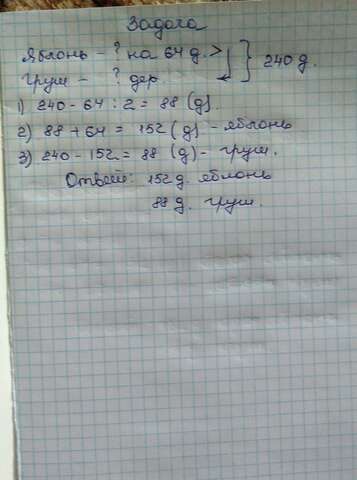 Задача
Яблонь - ? на 64 д. > } 240 д.
Груш - ? дер.
1) 240 - 64 : 2 = 88 (д).
2) 88 + 64 = 152 (д) - яблонь
3) 240 - 152 = 88 (д) - груш.
Ответ: 152 д. яблонь
88 д. груш.